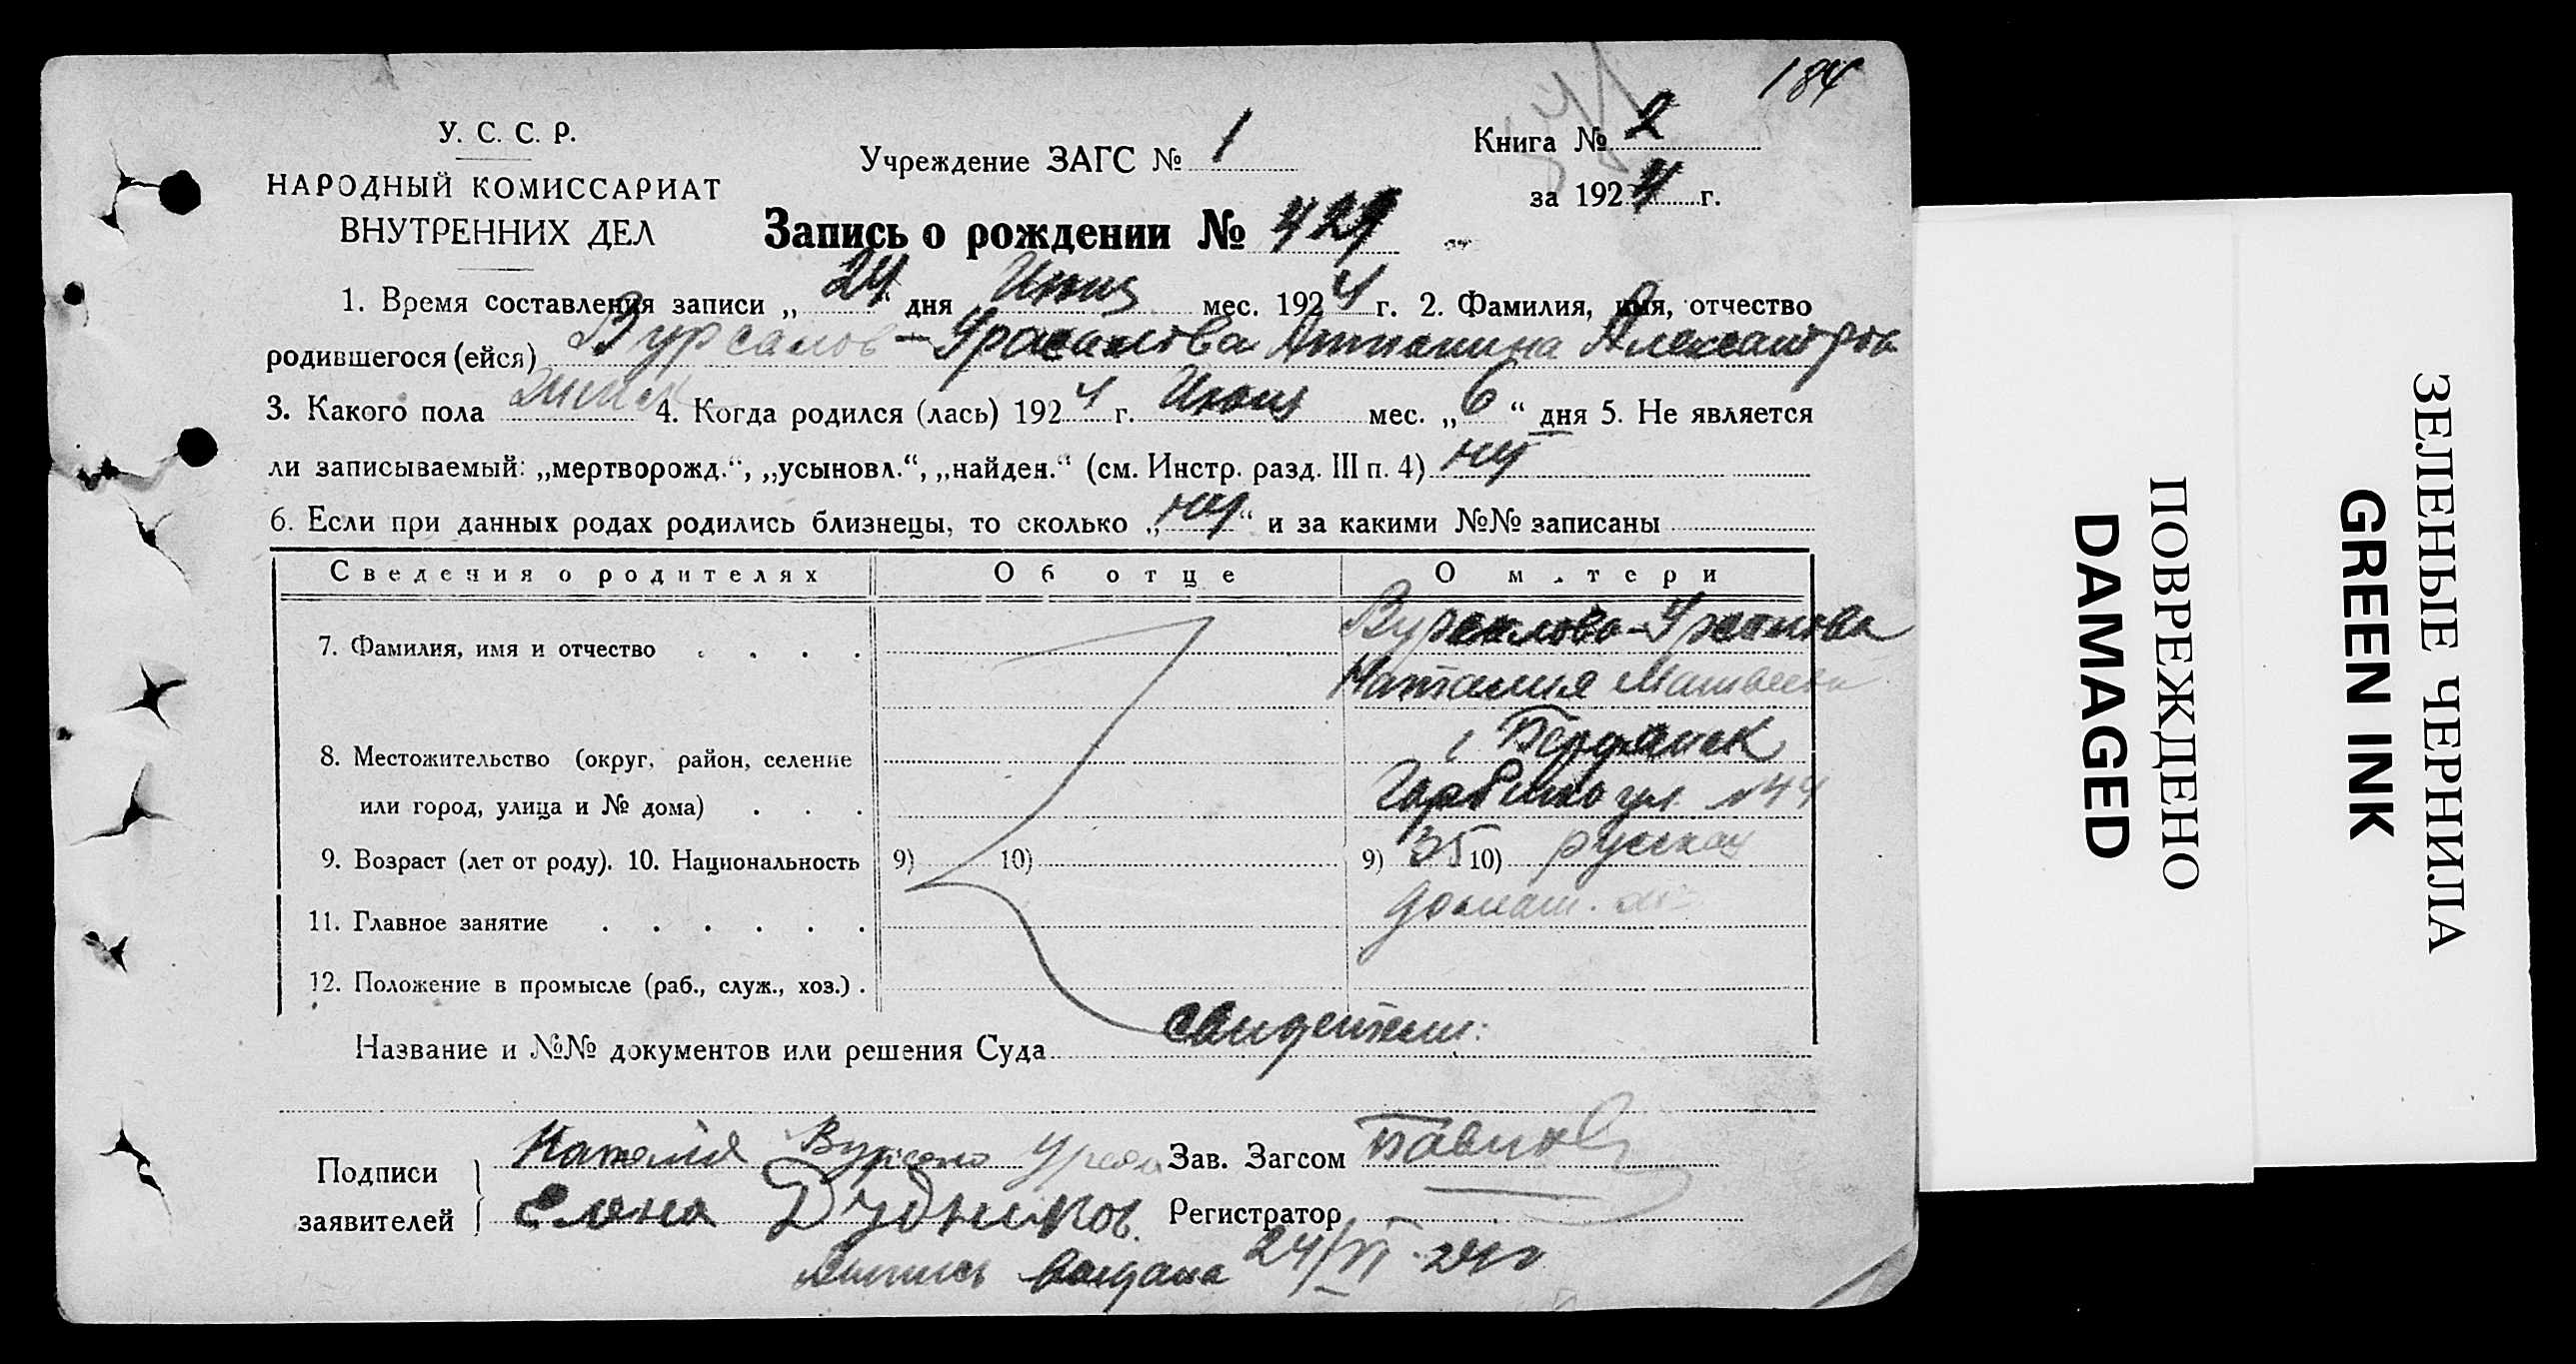 184
У. С. С. Р.
НАРОДНЫЙ КОМИССАРИАТ
ВНУТРЕННИХ ДЕЛ
Учреждение ЗАГС № 1
Книга № 2
за 1924 г.
Запись о рождении № 429
1. Время составления записи „24“ дня Июня мес. 1924 г. 2. Фамилия, имя, отчество
родившегося (ейся) Антонина Александров
3. Какого пола женск 4. Когда родился (лась) 1924 г. Июня мес. „6“ дня 5. Не является
ли записываемый: „мертворожд.“, „усыновл.“, „найден.“ (см. Инстр. разд. III п. 4) нет
6. Если при данных родах родились близнецы, то сколько „нет“ и за какими №№ записаны
Сведения о родителях Об отце О матери
7. Фамилия, имя и отчество . . . .
Наталия Матвеевна
8. Местожительство (округ, район, селение г. Бердянск
или город, улица и № дома) . . . ул. №44
9. Возраст (лет от роду). 10. Национальность 9) 10) 9) 35 10) русская
11. Главное занятие . . . . . . домаш. хоз
12. Положение в промысле (раб., служ., хоз.) .
Название и №№ документов или решения Суда свидетели:
Подписи заявителей
Наталия
Зав. Загсом
Елена Дудников.
Регистратор
выдана 24/VI-24 г
ПОВРЕЖДЕНО
DAMAGED
ЗЕЛЕНЫЕ ЧЕРНИЛА
GREEN INK